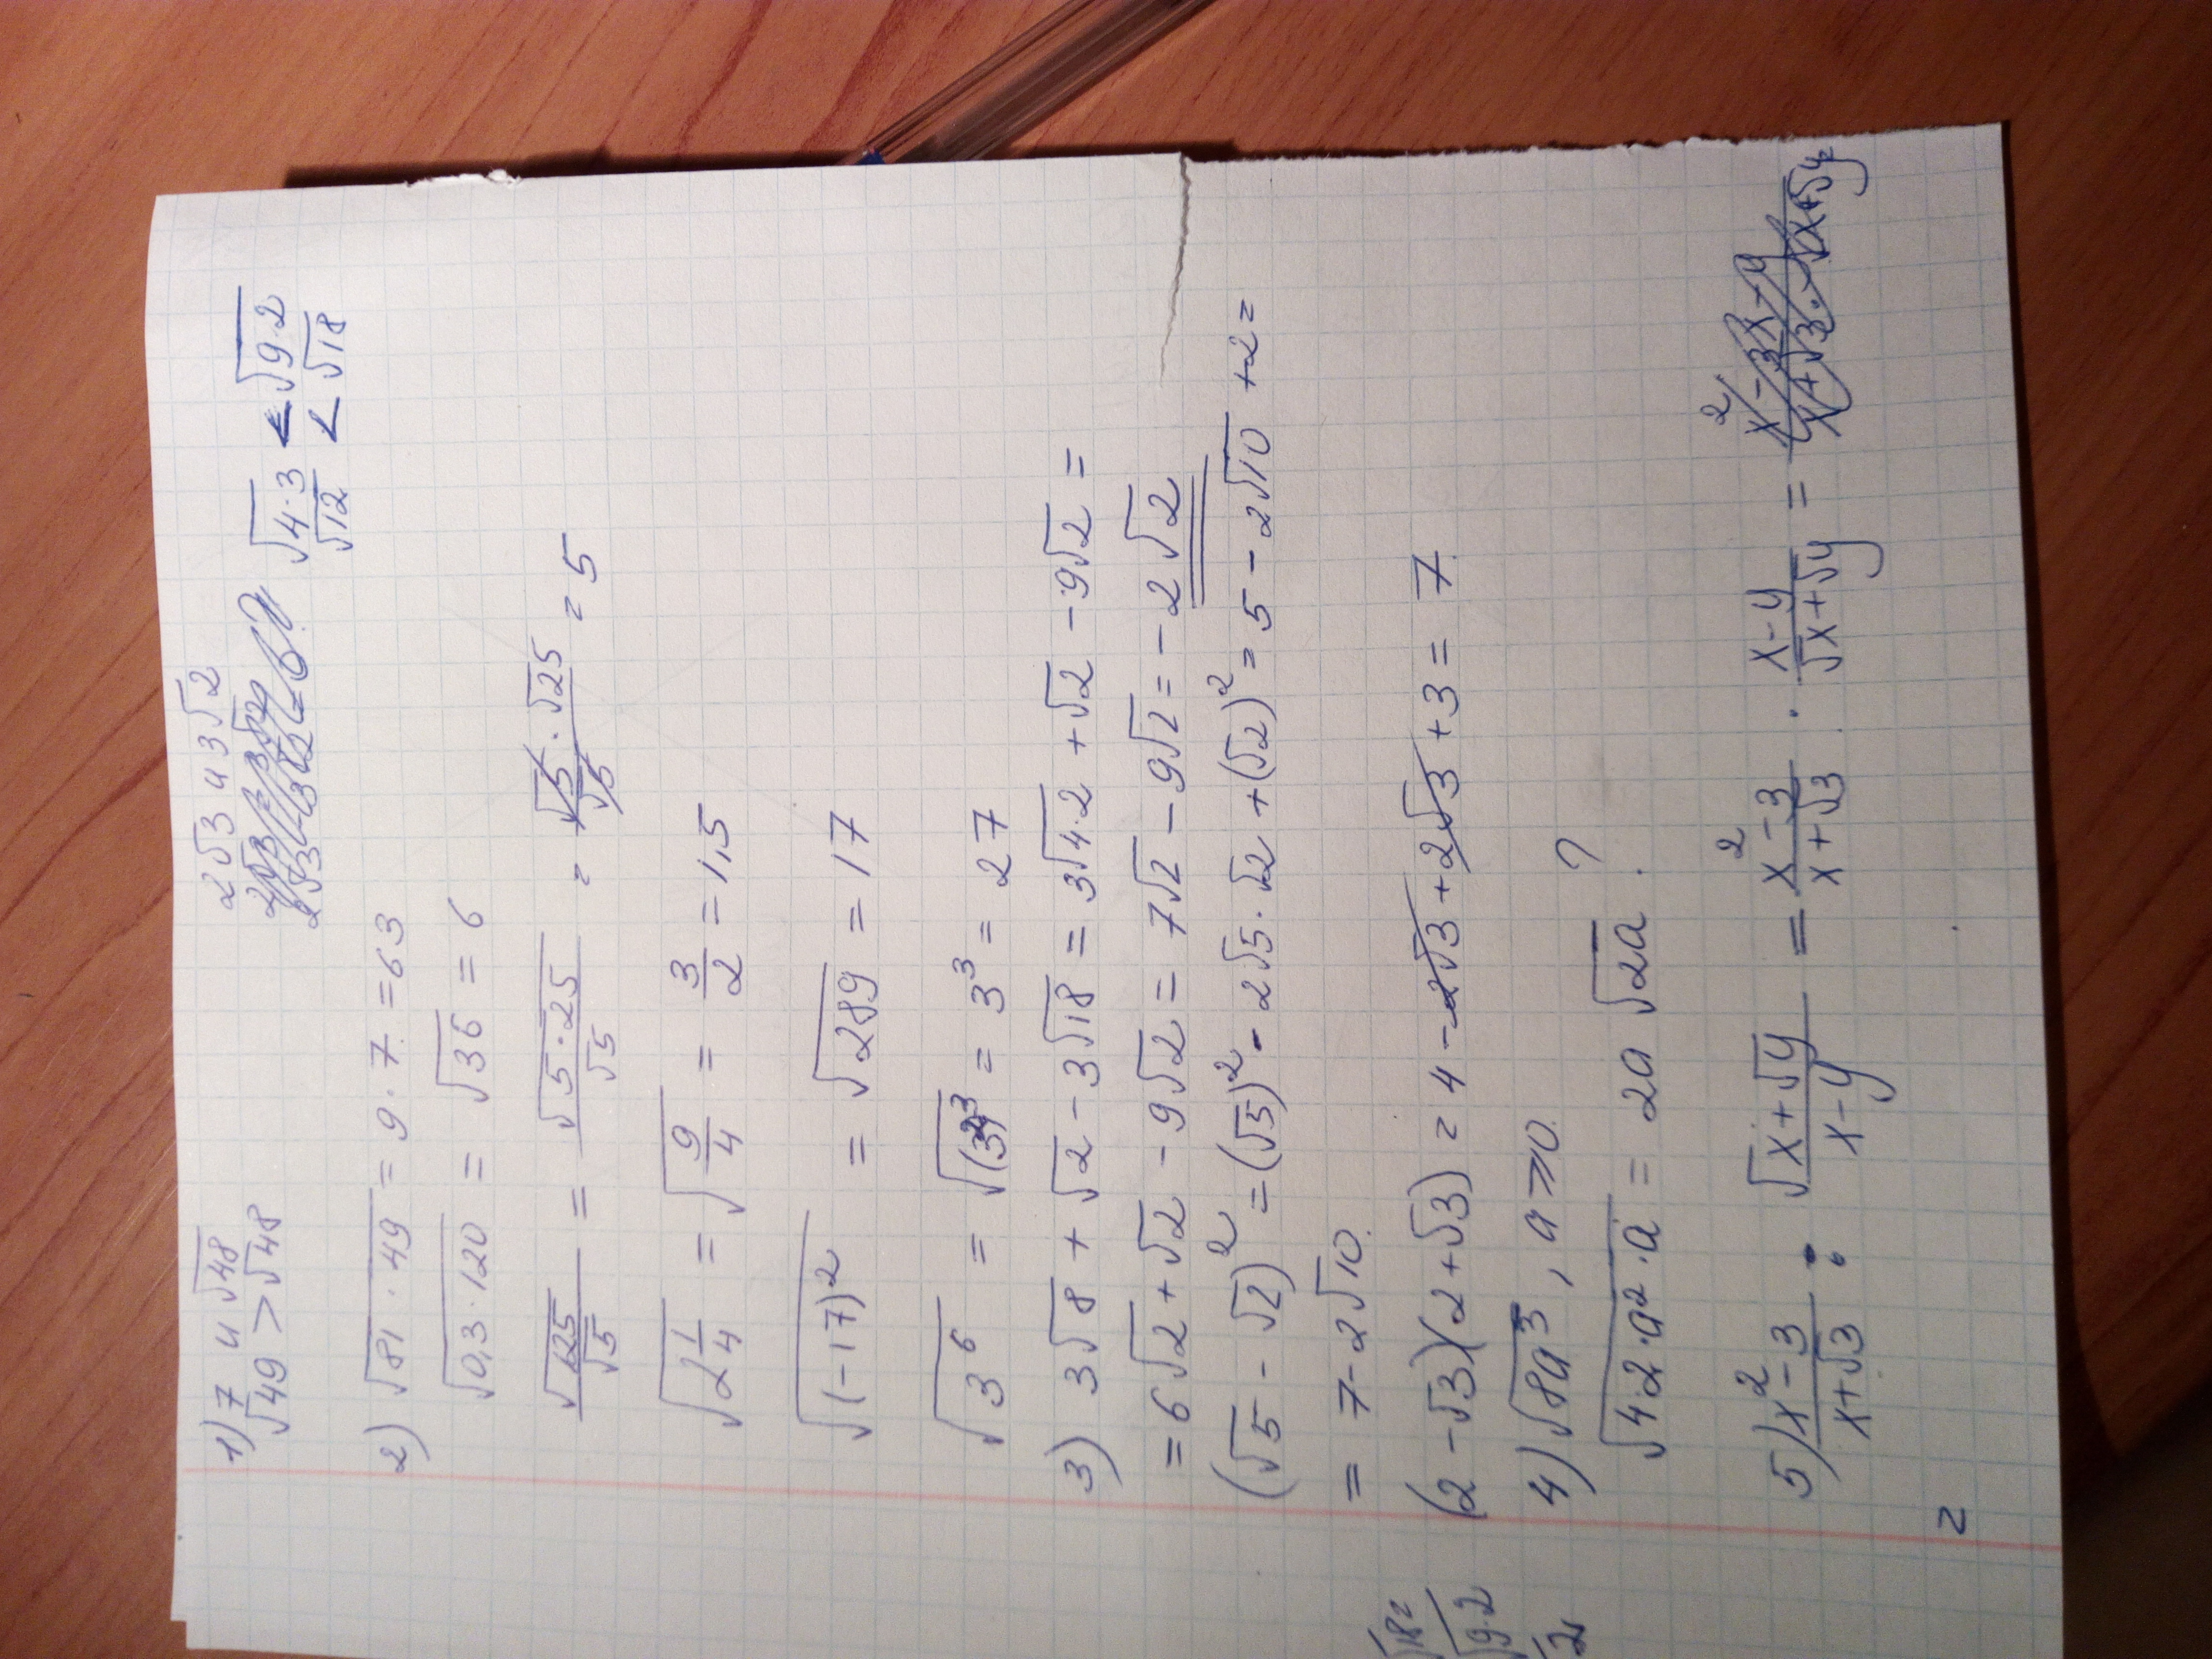 1) 7 и √48 2√3 и 3√2
√49 > √48 √4·3 < √9·2
√12 < √18
2) √81·49 = 9·7 = 63
√0,3·120 = √36 = 6
√125/√5 = √5·25/√5 = √5·√25/√5 = 5
√2 1/4 = √9/4 = 3/2 = 1,5
√(-17)² = √289 = 17
√3⁶ = √(3²)³ = 3³ = 27
3) 3√8 + √2 - 3√18 = 3√4·2 + √2 - 9√2 =
= 6√2 + √2 - 9√2 = 7√2 - 9√2 = -2√2
(√5 - √2)² = (√5)² - 2√5·√2 + (√2)² = 5 - 2√10 + 2 =
= 7 - 2√10.
(2 - √3)(2 + √3) = 4 - 2√3 + 2√3 + 3 = 7.
4) √8a³, a ⩾ 0.
√4·2·a²·a = 2a √2a. ?
5) x² - 3/x + √3 : √x + √y/x - y = x² - 3/x + √3 · x - y/√x + √y =
=
√18 =
√9·2